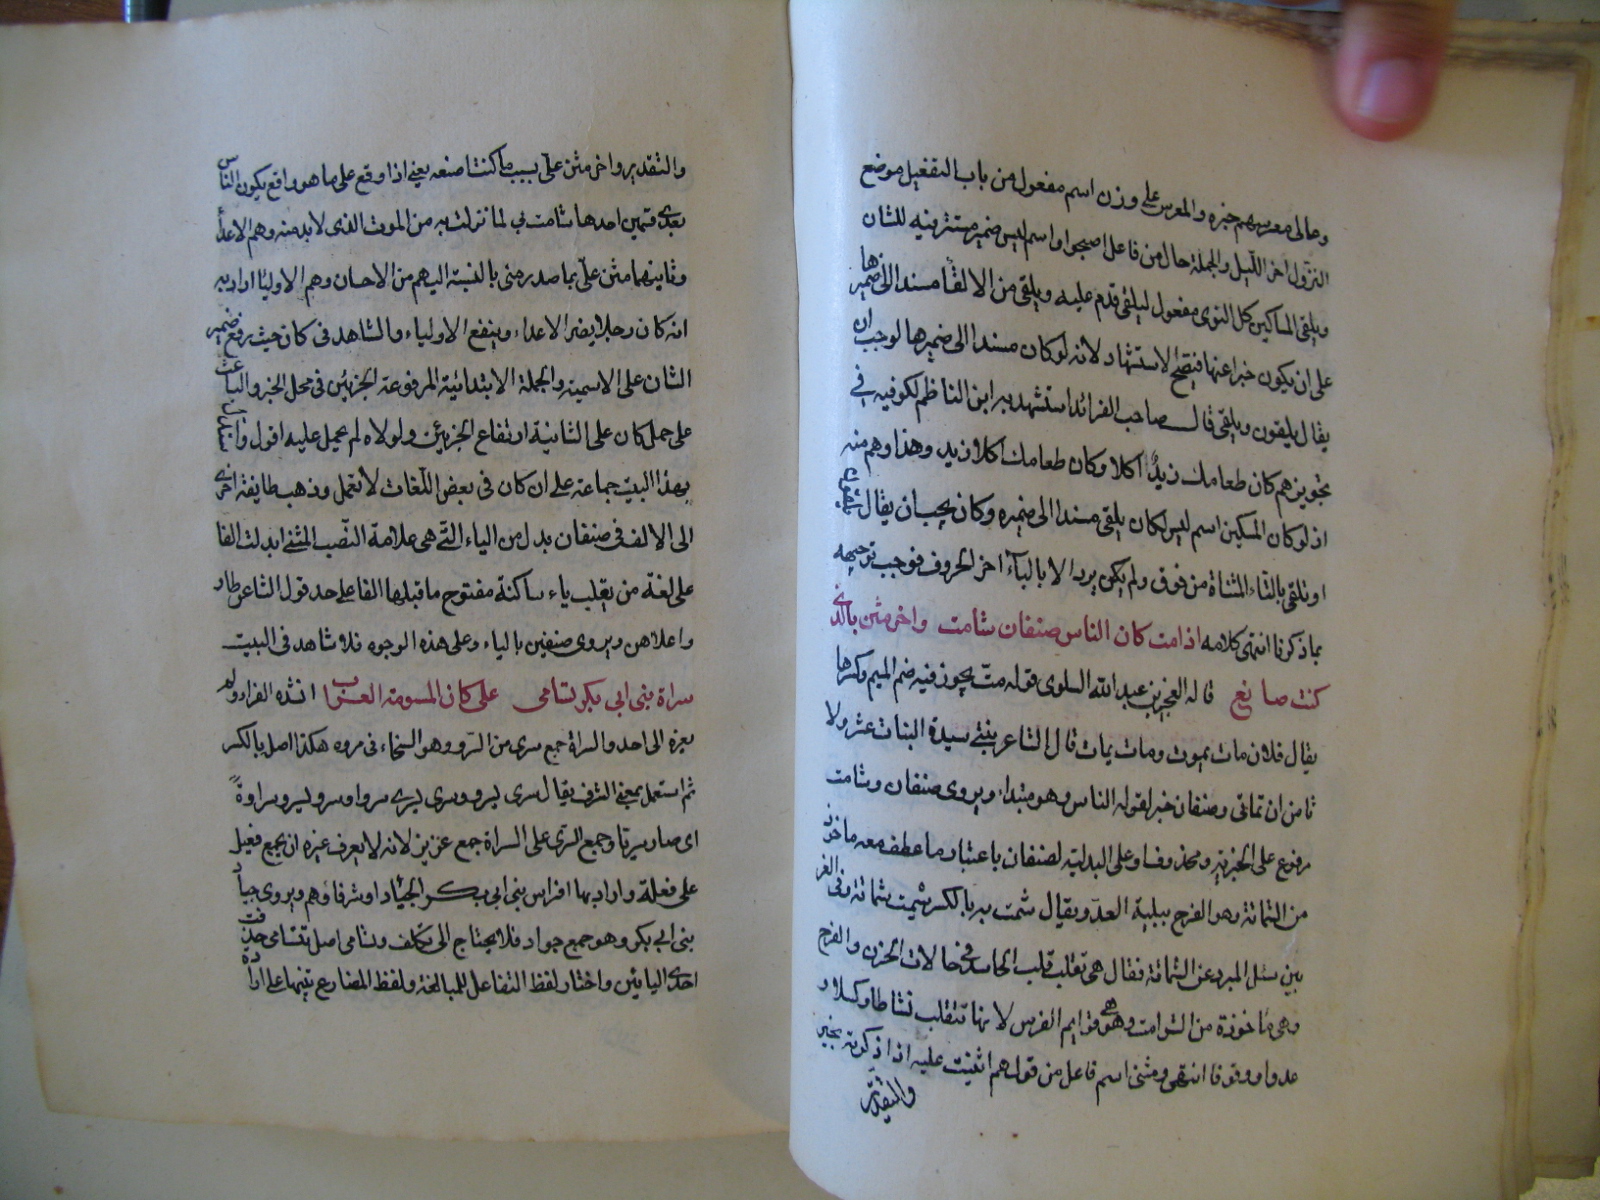 وعالى معرسهم خبره والمعرس على وزن اسم مفعول من باب التفعيل موضع
النزول اخر الليل والجملة حال من فاعل اصبحوا واسم ليس ضمير مستتر فيه للشان
ويلقى المساكين كل النوى مفعول ليلقى قدم عليه ويلقى من الالقا مسندا الى ضميرها
على ان يكون خبرا عنها فيتضح الاستشهاد لانه لو كان مسندا الى ضميرها لوجب ان
يقال يلقون ويلقى قال صاحب الفرائد استشهد به ابن الناظم لكوفيه في
تجويزهم كان طعامك زيدٌ اكلا وكان طعامك اكلا زيد وهذا وهم منه
اذ لو كان المسكين اسم ليس لكان يلقى مسندا الى ضميره وكان يجب ان يقال
او تلقى بالتاء المثناة من فوق ولم يكن يرد الا بالياء اخر الحروف فوجب توجيهه
بما ذكرنا انتهى كلامه اذا مت كان الناس صنفان شامت واخر مثن بالذى
كنت صانع قاله العجير بن عبد الله السلولى قوله مت يجوز فيه ضم الميم وكسرها
يقال فلان مات يموت ومات يمات قال الشاعر بنتى سيدة البنات عشر ولا
تامن ان تماتى وصنفان خبر لقوله الناس وهو مبتداء ويروى صنفان وشامت
مرفوع على الخبرية ومحذوف او على البدلية لصنفان باعتبار ما عطف معه ماخوذ
من الشماتة وهو الفرح ببلية العدو يقال شمت به بالكسر يشمت شماتة وفى الغر
بين سئل المبرد عن الشماتة فقال هى تقلب قلب الحاسد فى حالات الحزن والفرح
وهى ماخوذة من الشوامت وهو قوايم الفرس لانها تتقلب نشاطا وكسلا و
عدوا ووقوفا انتهى ومثنى اسم فاعل من قولهم اثنيت عليه اذا ذكرته بخير
والتقدير
والتقدير واخر مثن علىّ بسبب ما كنت اصنعه يعنى اذا وقع على ما هو واقع يكون الناس
بعدى قسمين احدها شامت بى لما نزلت به من الموت الذى لا بد منه وهم الاعدأ
وثانيهما مثن علىّ بما صدر منى بالنسبة اليهم من الاحسان وهم الاوليا اراد به
انه كان رجلا يضر الاعداء وينفع الاولياء والشاهد فى كان حيث رفع ضمير
الشان على الاسمية والجملة الابتدائية المرفوعة الجزئين فى محل الخبر والباعث
على حمل كان على الشانية ارتفاع الجزئين ولولاه لم يحمل عليه اقول واحتج
بهذا البيت جماعة على ان كان فى بعض اللغات لا تعمل وذهب طايفة اخرى
الى الالف فى صنفان بدل من الياء التى هى علامة النصب المثنى ابدلت الفا
على لغة من يقلب ياء ساكنة مفتوح ما قبلها الفا على حد قول الشاعر طار
واعلاهن ويروى صنفين بالياء وعلى هذه الوجوه فلا شاهد فى البيت
سراة بنى ابى بكر تسامى على كان المسومة العراب انشده الفراء ولم
يعزه الى احد والسراة جمع سرى من السرو وهو السخاء فى مروه هكذا اصل بالكسر
ثم استعمل بمعنى الشرف يقال سرى يسرو وسرى يسرى سروا وسرو يسرو سراوةً
اى صار سريا وجمع السرى على السراة جمع عزيز لانه لا يعرف غيره ان يجمع فعيل
على فعلة واراد بها افراس بنى ابى بكر الجياد او شرفاؤهم ويروى جياد
بنى ابى بكر وهو جمع جواد فلا يحتاج الى تكلف وتسامى اصل تتسامى حذفت
احدى اليائين واختار لفظ التفاعل للمبالغة ولفظ المضارع تنبيها على ارادة